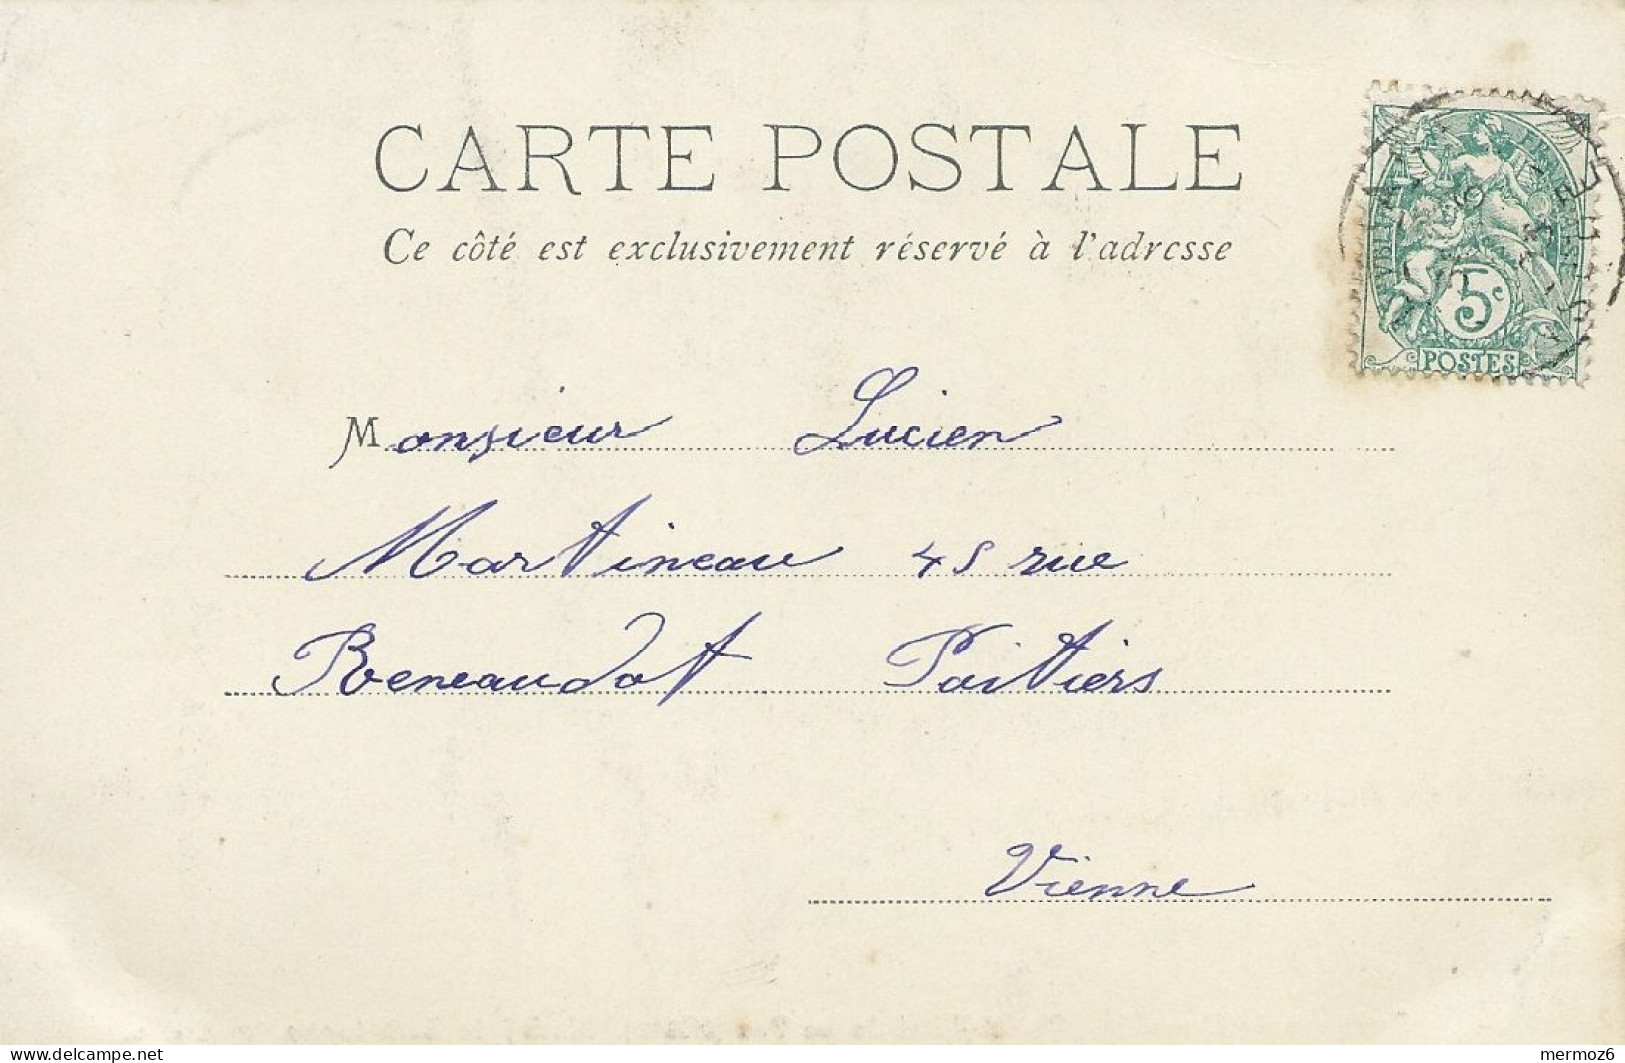 CARTE POSTALE
Ce côté est exclusivement réservé à l'adresse
5c
POSTES
Monsieur Lucien
Martineau 45 rue
Reneaudot Poitiers
Vienne
delcampe.net
mermoz6